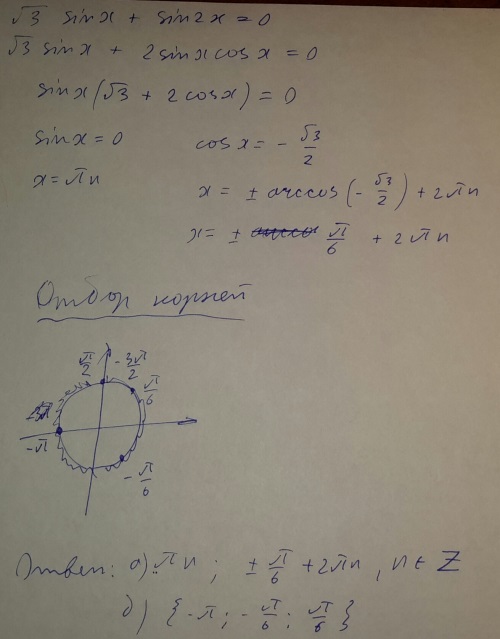 √3 sinx + sin2x = 0
√3 sinx + 2sinx cosx = 0
sinx(√3 + 2cosx) = 0
sinx = 0 cosx = - √3/2
x = πn x = ± arccos(- √3/2) + 2πn
x = ± π/6 + 2πn
Отбор корней
π/2 - 3π/2
π/6
-π
- π/6
Ответ: а) πn ; ± π/6 + 2πn , n ∈ Z
б) {-π ; - π/6 ; π/6}